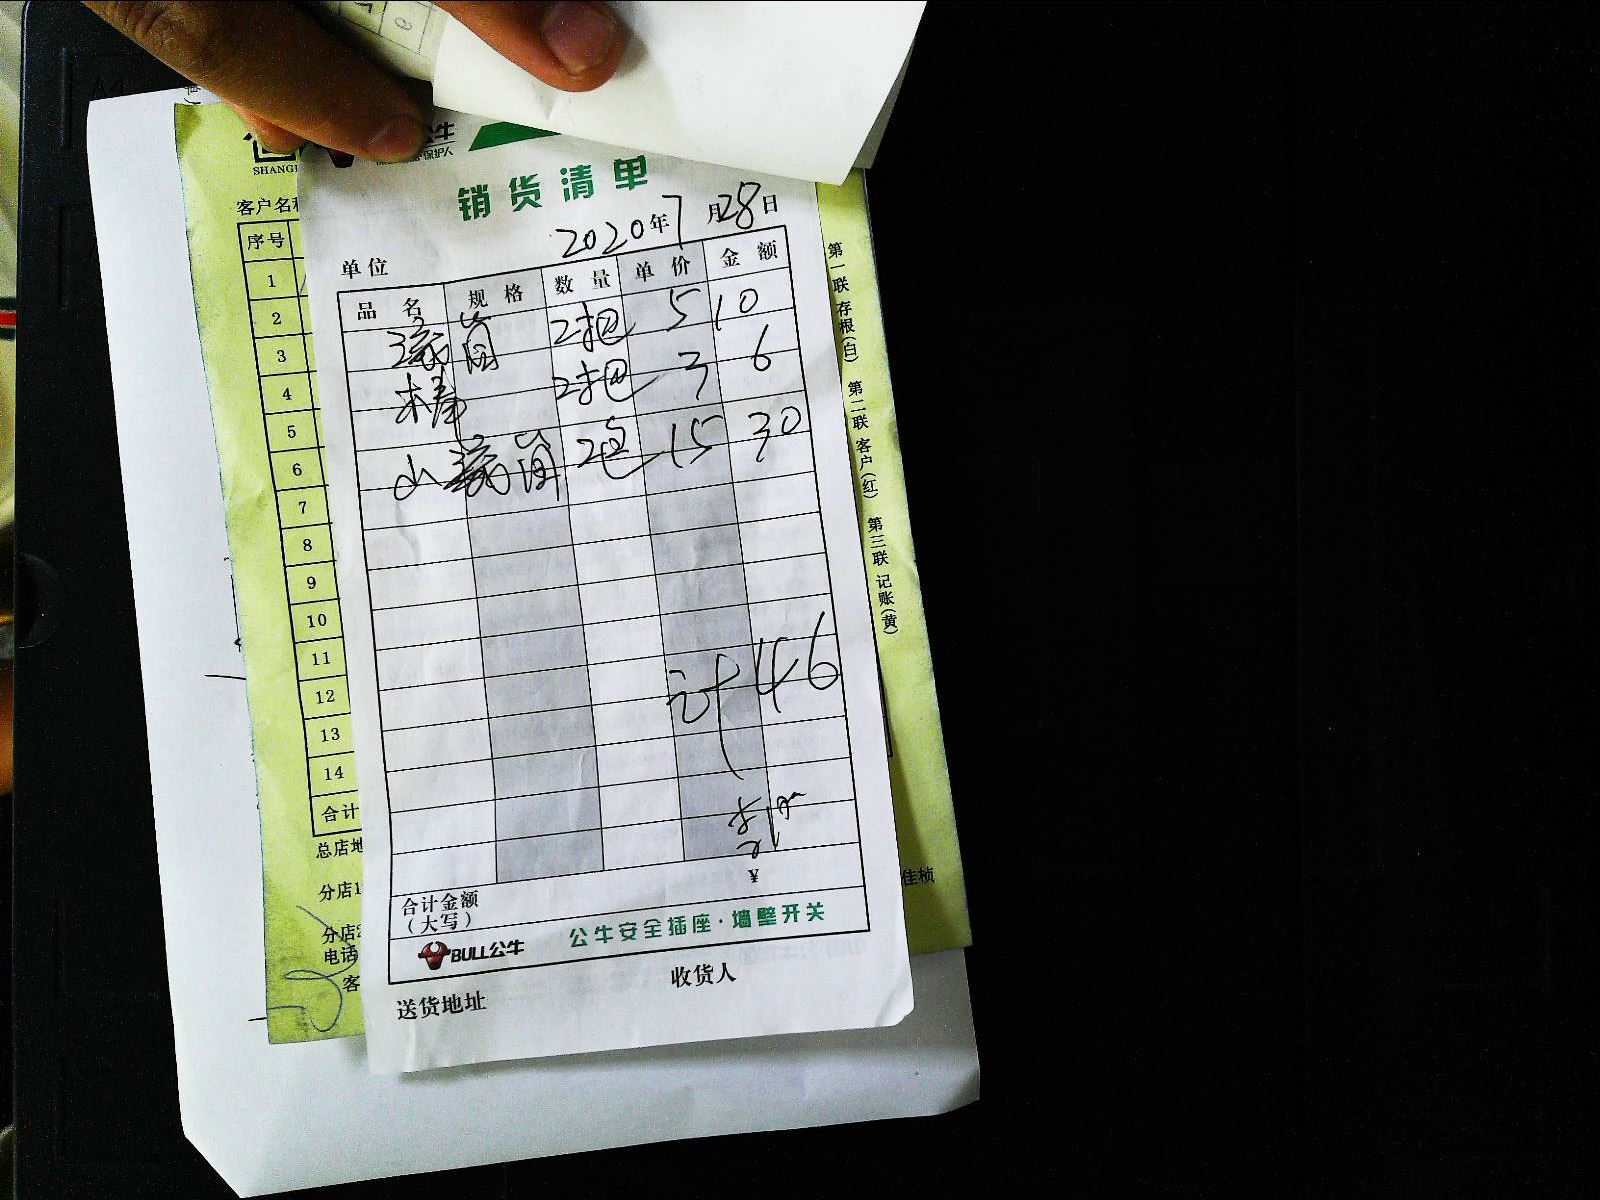 SHANG
公牛
保护人
销货清单
2020年7月28日
客户名称
单位
序号
品名 规格 数量 单价 金额
2把 5 10
2把 3 6
小 2包 15 30
计46
1
2
3
4
5
6
7
8
9
10
11
12
13
14
合计
总店地
分店1
分店2
电话
客
¥
合计金额
(大写)
BULL公牛 公牛安全插座·墙壁开关
送货地址 收货人
第一联 存根(白)
第二联 客户(红)
第三联 记账(黄)
佳桢